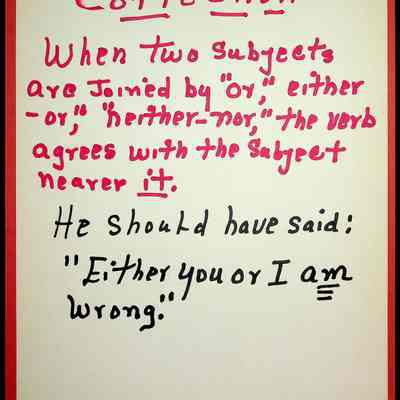 Correction
When two Subjects
are Joined by "or," either
-or," "neither-nor," the verb
agrees with the Subject
nearer it.
He should have said:
"Either you or I am
wrong."